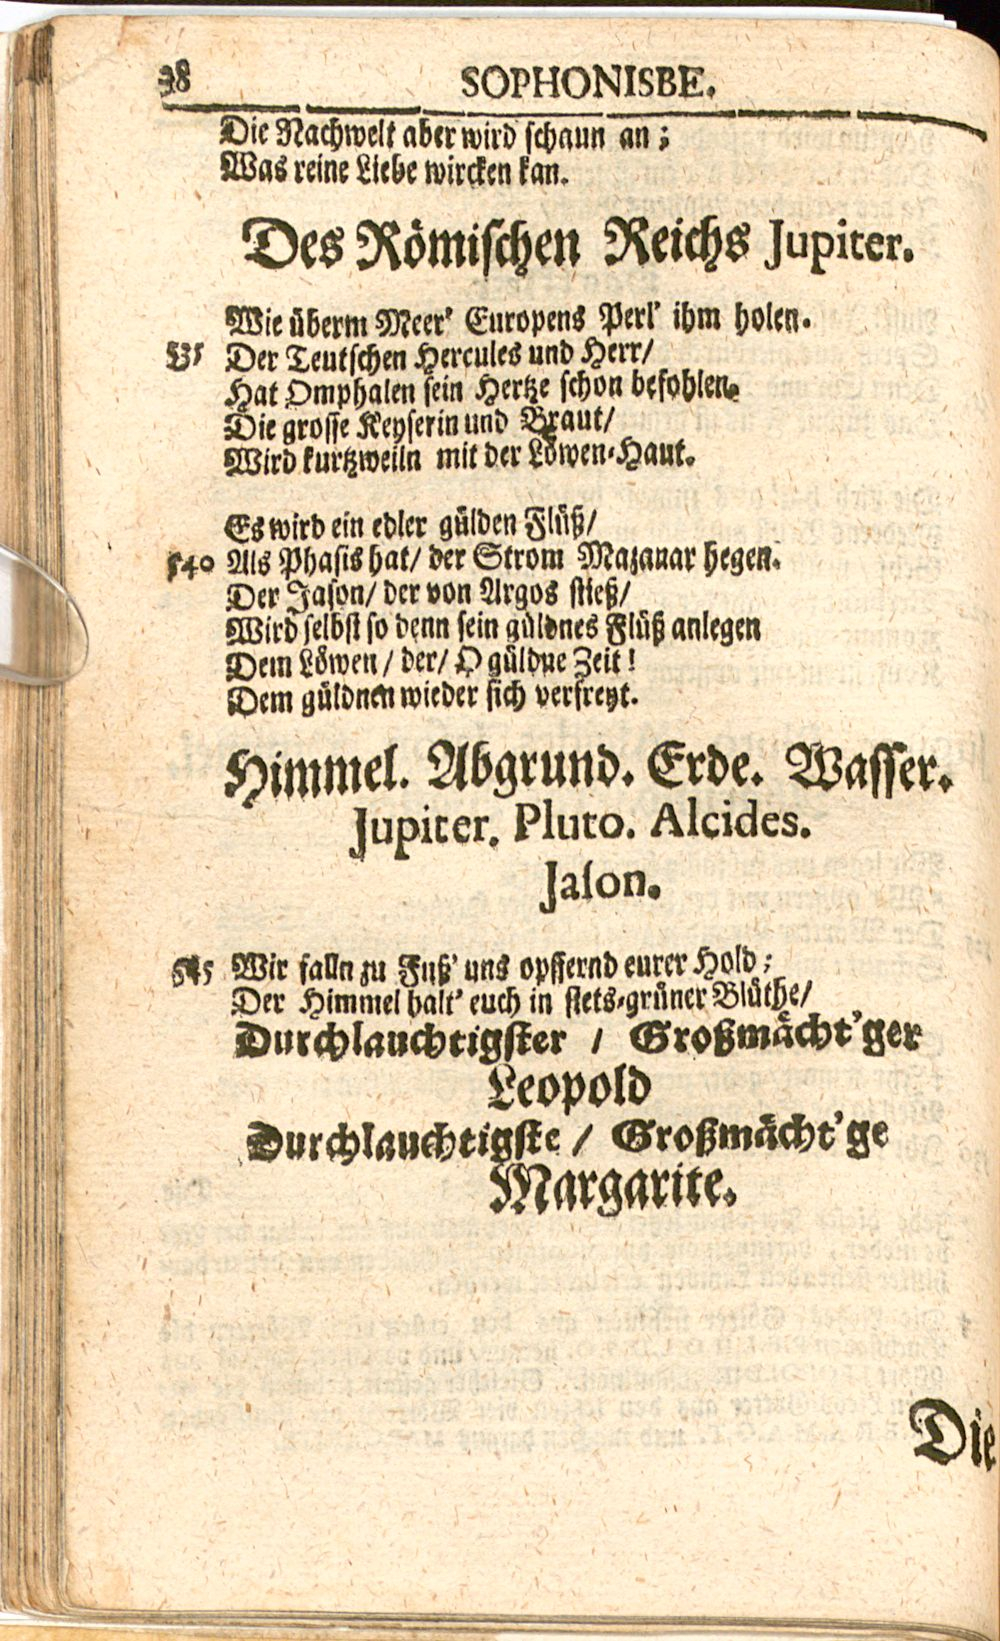 38 SOPHONISBE.
Die Nachwelt aber wird schaun an;
Was reine Liebe wircken kan.
Des Römischen Reichs Jupiter.
Wie überm Meer' Europens Perl' ihm holen.
535 Der Teutschen Hercules und Herr/
Hat Omphalen sein Hertze schon befohlen.
Die grosse Keyserin und Braut/
Wird kurtzweiln mit der Löwen-Haut.
Es wird ein edler gülden Flüß/
540 Als Phasis hat/ der Strom Mazanar hegen.
Der Jason/ der von Argos stieß/
Wird selbst so denn sein güldnes Flüß anlegen
Dem Löwen/ der/ O güldne Zeit!
Dem güldnen wieder sich verfreyt.
Himmel. Abgrund. Erde. Wasser.
Jupiter. Pluto. Alcides.
Jason.
545 Wir falln zu Fuß' uns opffernd eurer Hold;
Der Himmel halt' euch in stets-grüner Blüthe/
Durchlauchtigster / Großmächt'ger
Leopold
Durchlauchtigste / Großmächt'ge
Margarite.
Die